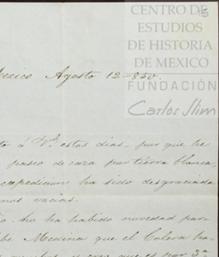 CENTRO DE
ESTUDIOS
DE HISTORIA
DE MEXICO
FUNDACIÓN
Carlos Slim
Mexico Agosto 12-850.
to á V. estos dias, por que he
paseo de caza por tierra blanca,
espedicion ha sido desgraciada
mos vacias.
No ha habido novedad por
be Medina que el Colera ha